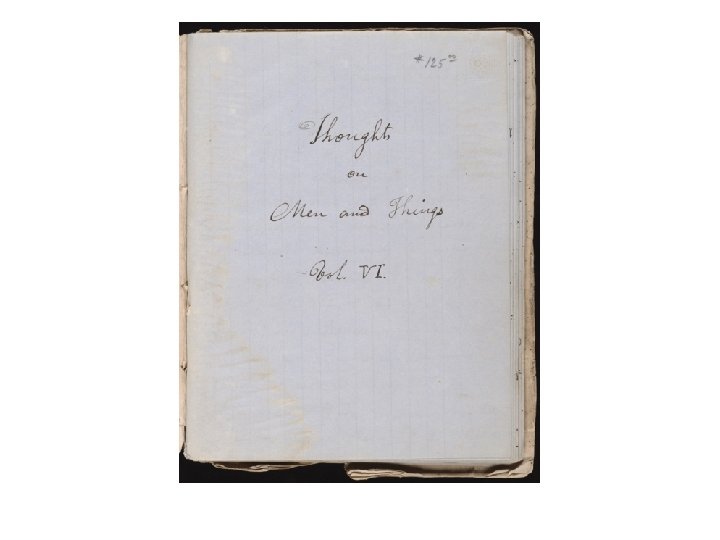 #125⁰⁰
Thoughts
on
Men and Things
Vol. VI.